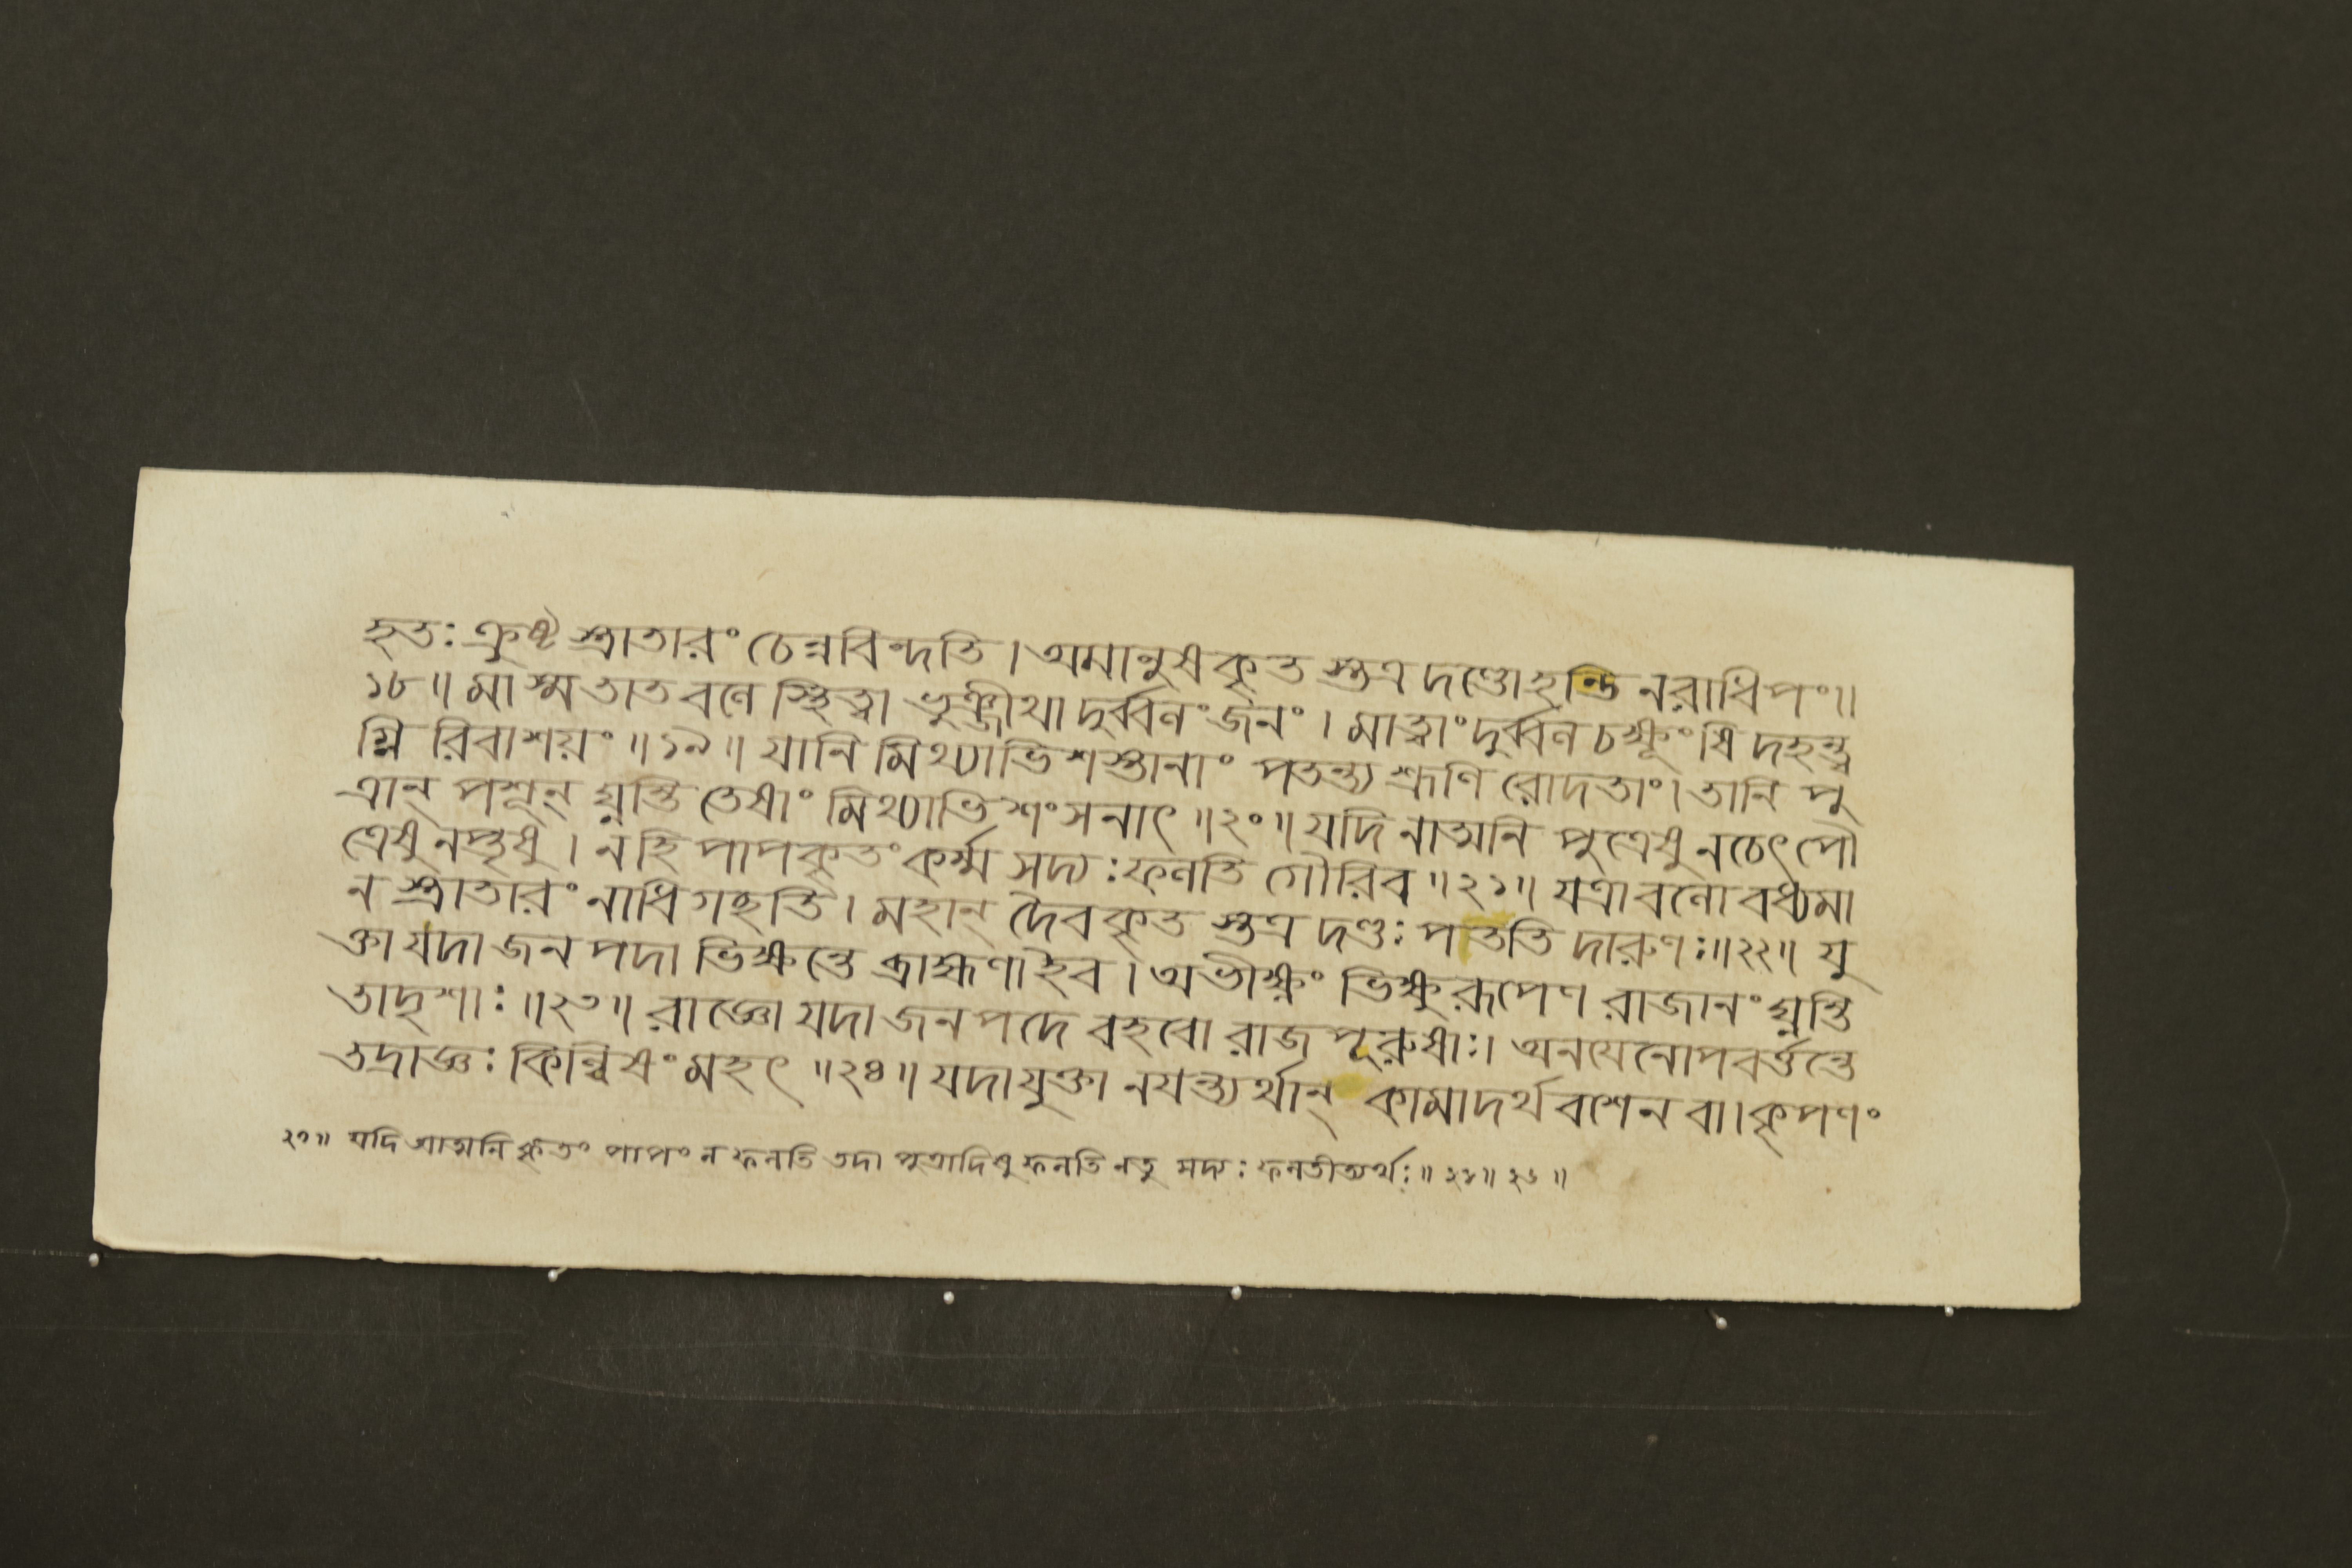 হতঃ ক্রুষ্ট স্ত্রাতারং চেন্নবিন্দতি। অমানুষকৃত স্তত্র দণ্ডোহন্তি নরাধিপং॥
১৮॥ মাস্ম তাত বলে স্থিত্বা ভুঞ্জীথা দুর্ব্বলং জনং। মাত্বাং দুর্ব্বল চক্ষূংষি দহন্ত্ব
গ্নি রিবাশয়ং॥১৯॥ যানি মিথ্যাভিশস্তানাং পতন্ত্য শ্রূণি রোদতাং। তানি পু
ত্রান্ পশূন্ ঘ্নন্তি তেষাং মিথ্যাভিশংসনাৎ॥২০॥ যদি নাত্মনি পুত্রেষু নচেৎ পৌ
ত্রেষু নপ্তৃষু। নহি পাপকৃতং কর্ম্ম সদ্যঃ ফলতি গৌরিব॥২১॥ যত্রাবলো বধ্যমা
ন স্ত্রাতারং নাধিগচ্ছতি। মহান্ দৈবকৃত স্তত্র দণ্ডঃ পততি দারুণঃ॥২২॥ যু
ক্তা যদা জনপদা ভিক্ষন্তে ব্রাহ্মণাইব। অভীক্ষ্ণং ভিক্ষুরূপেণ রাজানং ঘ্নন্তি
তাদৃশাঃ॥২৩॥ রাজ্ঞো যদা জনপদে বহবো রাজপূরুষাঃ। অনয়েনোপবর্ত্তন্তে
তদ্রাজ্ঞঃ কিল্বিষং মহৎ॥২৪॥ যদাযুক্তা নয়ন্ত্যর্থান্ কামাদর্থবশেন বা। কৃপণং
২১॥ যদি আত্মনি কৃতং পাপং ন ফলতি তদা পুত্রাদিষু ফলতি নতু সদ্যঃ ফলতীত্যর্থঃ॥ ২২॥ ২৩॥